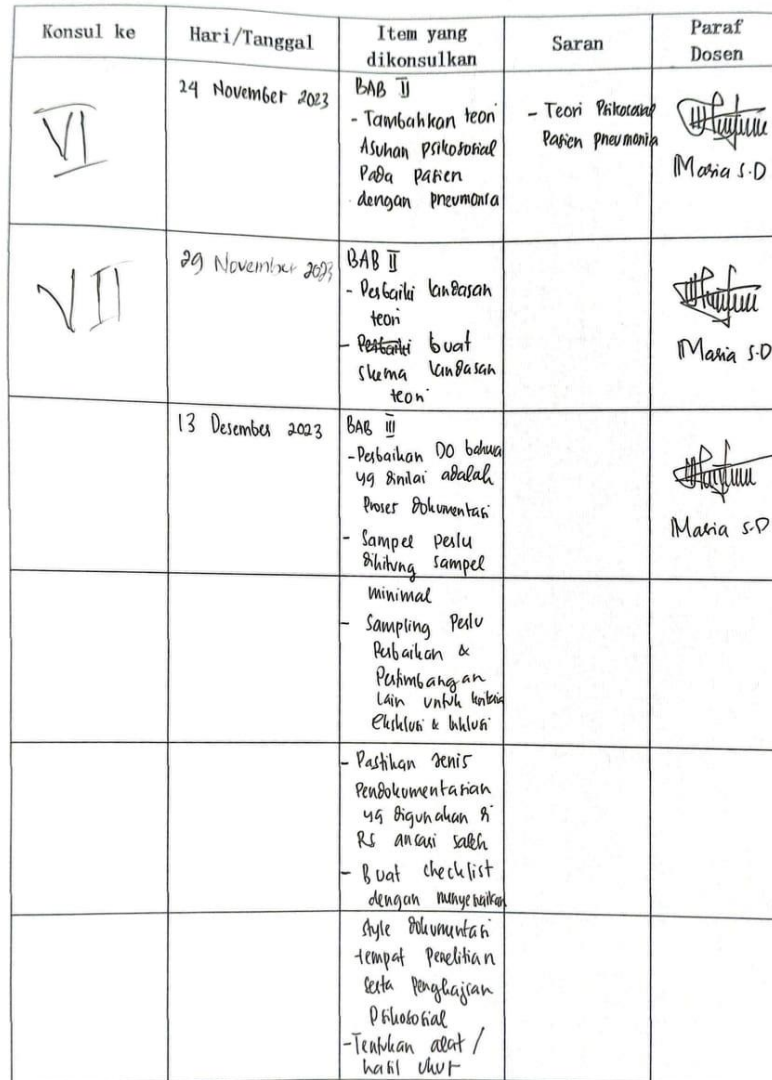 Konsul ke
Hari/Tanggal
Item yang
dikonsulkan
Saran
Paraf
Dosen
VI
24 November 2023
BAB II
- Tambahkan teori
Asuhan psikososial
Pada pasien
dengan pneumonia
- Teori Psikososial
Pasien pneumonia
Maria S.D
VII
29 November 2023
BAB II
- Perbaiki landasan
teori
- Perbaiki buat
skema landasan
teori
Maria S.D
13 Desember 2023
BAB III
- Perbaikan DO bahwa
yg dinilai adalah
Proses dokumentasi
- Sampel perlu
dihitung sampel
minimal
- Sampling Perlu
Perbaikan &
Pertimbangan
Lain untuk kriteria
Eksklusi & Inklusi
Maria S.D
- Pastikan Jenis
Pendokumentasian
yg digunakan di
RS ansari saleh
- Buat checklist
dengan menyesuaikan
style dokumentasi
tempat Penelitian
serta Pengkajian
Psikososial
- Tentukan alat /
hasil ukur